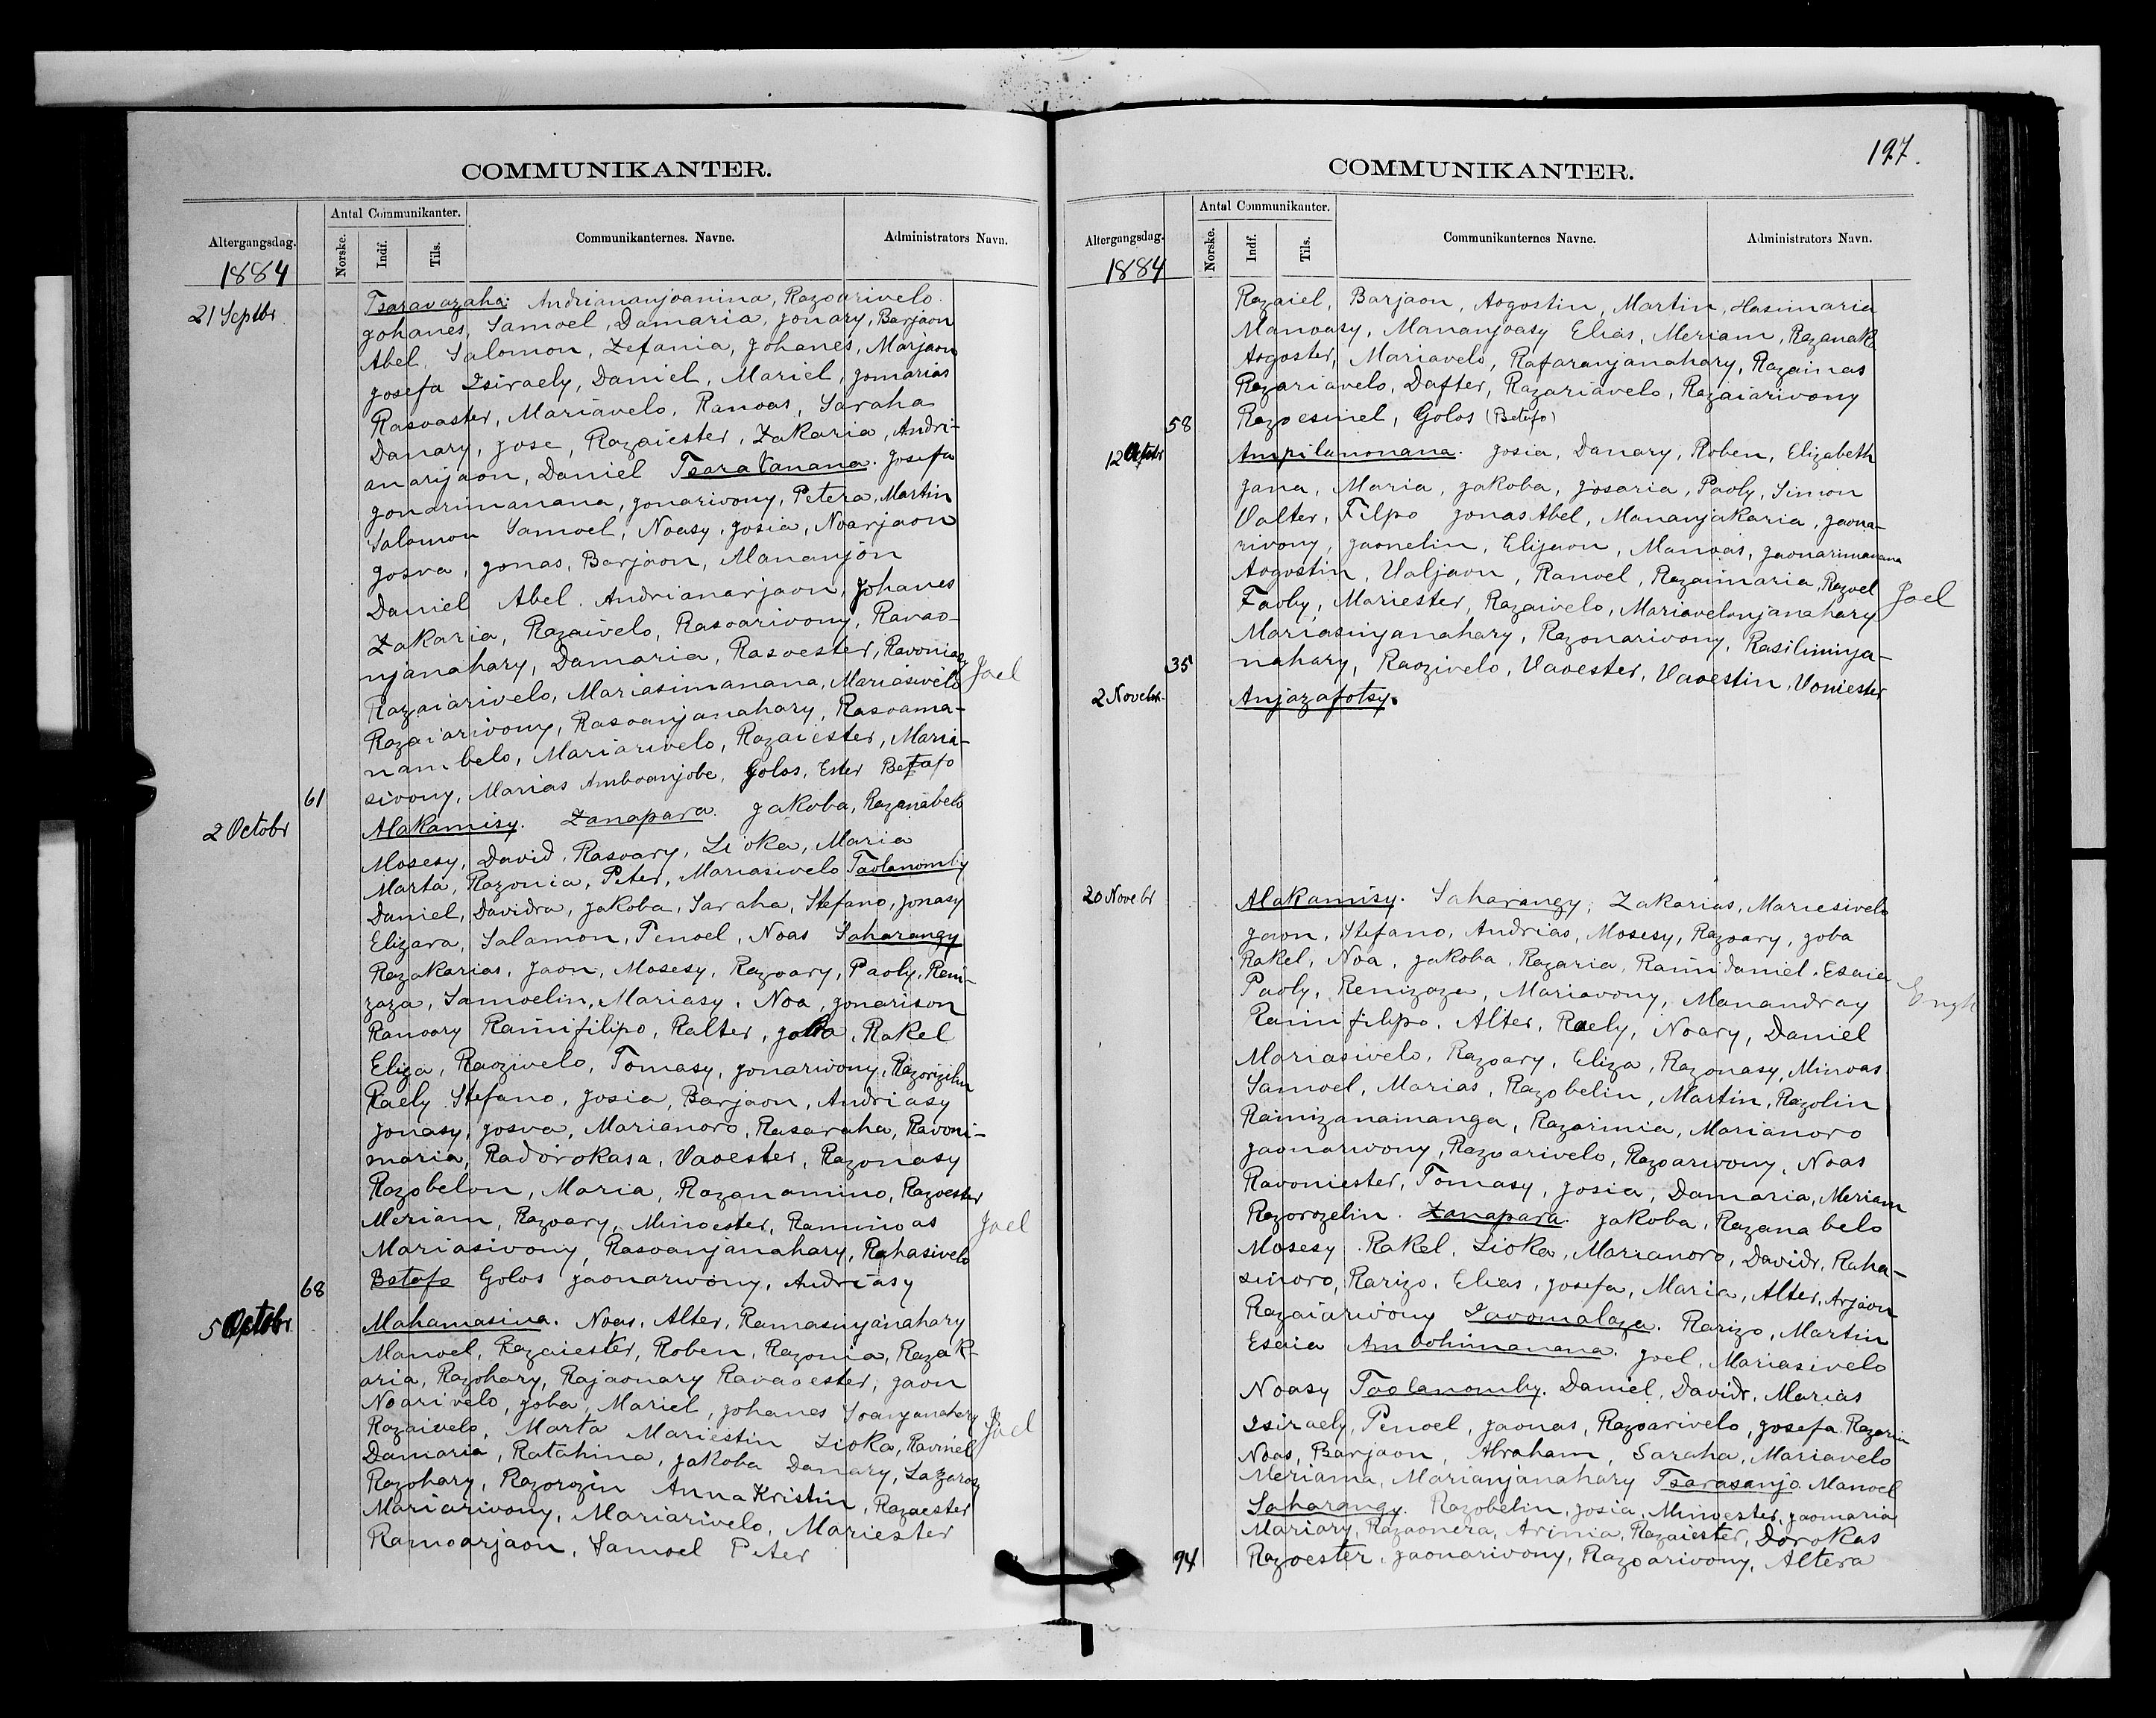 COMMUNIKANTER.
Altergangsdag.
Antal Communikanter.
Norske.
Indf.
Tils.
Communikanternes. Navne.
Administrators Navn.
1884
21 Septbr
Tsaravazaha. Andriananjoanina, Razoarivelo.
Johanes, Samoel, Damaria, Jonary, Barjaon
Abel, Salomon, Zefania, Johanes, Marjaon
Josefa Isiraely, Daniel, Mariel, Jomarias
Rasoaster, Mariavelo, Ranoas, Saraha
Danary, Jose, Razaiester, Zakaria, Andri-
anarijaon, Daniel Tsaratanana. Josefa
Jonarimanana, Jonarivony, Petera, Martin
Salomon Samoel, Noasy, Josia, Noarjaon
Josva, Jonas, Barjaon, Mananjon
Daniel Abel. Andrianarjaon, Johanes
Zakaria, Razaivelo, Rasoarivony, Ravao-
njanahary, Damaria, Rasoester, Ravoniasy
Razaiarivelo, Mariasimanana, Mariasivelo
Joel
Razaiarivony, Rasoanjanahary, Rasoama-
nambelo, Mariarivelo, Razaiester, Maria-
sivony, Marias Amboanjobe, Golos, Ester Betafo
61
2 Octobr
Alakamisy. Zanapara. Jakoba, Razanabelo
Mosesy, David, Rasoary, Lioka, Maria
Marta, Razonia, Peter, Mariasivelo Taolanomby
Daniel, Davidra, Jakoba, Saraha, Stefano, Jonasy
Elizara, Salamon, Penoel, Noas Saharangy
Razakarias, Jaon, Mosesy, Razoary, Paoly, Reni-
zaza, Samoelin, Mariasy, Noa, Jonarison
Ranoary Rainifilipo, Ralter, Joba, Rakel
Eliza, Raozivelo, Tomasy, Jonarivony,
Raely Stefano, Josia, Barjaon, Andriasy
Jonasy, Josva, Marianoro, Rasaraha, Ravoni-
maria, Radorokasa, Vavester, Razonasy
Razobelon, Maria, Razanamino, Razoester
Meriam, Razoary, Minoester, Raminoas
Joel
Mariasivony, Rasoanjanahary, Rahasivelo
Betafo Golos Jaonarivony, Andriasy
68
5 Octobr
Mahamasina. Noas, Alter, Ramasinjanahary
Manoel, Razaiester, Roben, Razonia, Razak-
aria, Razohary, Rajaonary Ravaoester, Jaon
Noarivelo, Joba, Mariel, Johanes Soanjanahary
Razaivelo, Marta Mariestin Lioka, Raviniel
Joel
Damaria, Ratahina, Jakoba Danary, Lazarosy
Razohary, Razorozin Anna Kristin, Razaester
Mariarivony, Mariarivelo, Mariester
Ramoarjaon, Samoel Peter
197.
COMMUNIKANTER.
Altergangsdag.
Antal Communikanter.
Norske.
Indf.
Tils.
Communikanternes Navne.
Administrators Navn.
1884
Razaiel, Barjaon, Aogostin, Martin, Hasimaria
Manoasy, Mananjoasy Elias, Meriam, Razanak
Aogoster, Mariavelo, Rafaranjanahary, Razainas
Razariavelo, Dafter, Razariavelo, Razaiarivony
Razoesinel, Golos (Betafo)
58
12 Octobr
Ampilanonana. Josia, Danary, Roben, Elizabeth
Jana, Maria, Jakoba, Josaria, Paoly, Simon
Valter, Filpo Jonas Abel, Mananjakaria, Jaona-
rivony, Jaonelin, Elijaon, Manoas, Jaonarimanana
Aogostin, Valjaon, Ranoel, Razaimaria, Razoel
Joel
Faoby, Mariester, Razaivelo, Mariavelonjanahary
Mariasinjanahary, Razonarivony, Rasiliminja-
nahary, Raozivelo, Vavester, Vavestin, Voniester
35
2 Novebr.
Anjazafotsy.
20 Novebr
Alakamisy. Saharangy. Zakarias, Mariesivelo
Jaon, Stefano, Andrias, Mosesy, Razoary, Joba
Rakel, Noa, Jakoba, Razaria, Rainidaniel. Esaia
Paoly, Renizaza, Mariavony, Manandray
Engh
Rainifilipo, Alter, Raely, Noary, Daniel
Mariasivelo, Razoary, Eliza, Razonasy, Minoas
Samoel, Marias, Razobelin, Martin, Razolin
Rainizanamanga, Razarinia, Marianoro
Jaonarivony, Razoarivelo, Razoarivony, Noas
Ravoniester, Tomasy, Josia, Damaria, Meriam
Razorozelin. Zanapara. Jakoba, Razanabelo
Mosesy. Rakel, Lioka, Marianoro, Davidr, Raha-
sinoro, Rarizo, Elias, Josefa, Maria, Alter, Arjaon
Razaiarivony Zavomalaza. Rarizo, Martin
Esaia Ambohimanana. Joel, Mariasivelo
Noasy Taolanomby. Daniel, Davidr, Marias
Isiraely, Penoel, Jaonas, Razoarivelo, Josefa Razarin
Noas, Barjaon, Abraham, Saraha, Mariavelo
Meriama, Marianjanahary Tsarasanjo. Manoel
Saharangy. Razobelin, Josia, Minoester, Jaomaria
Mariary, Razaonera, Arinia, Razaiester, Dorokas
Razoester, Jaonarivony, Razoarivony, Altera
94